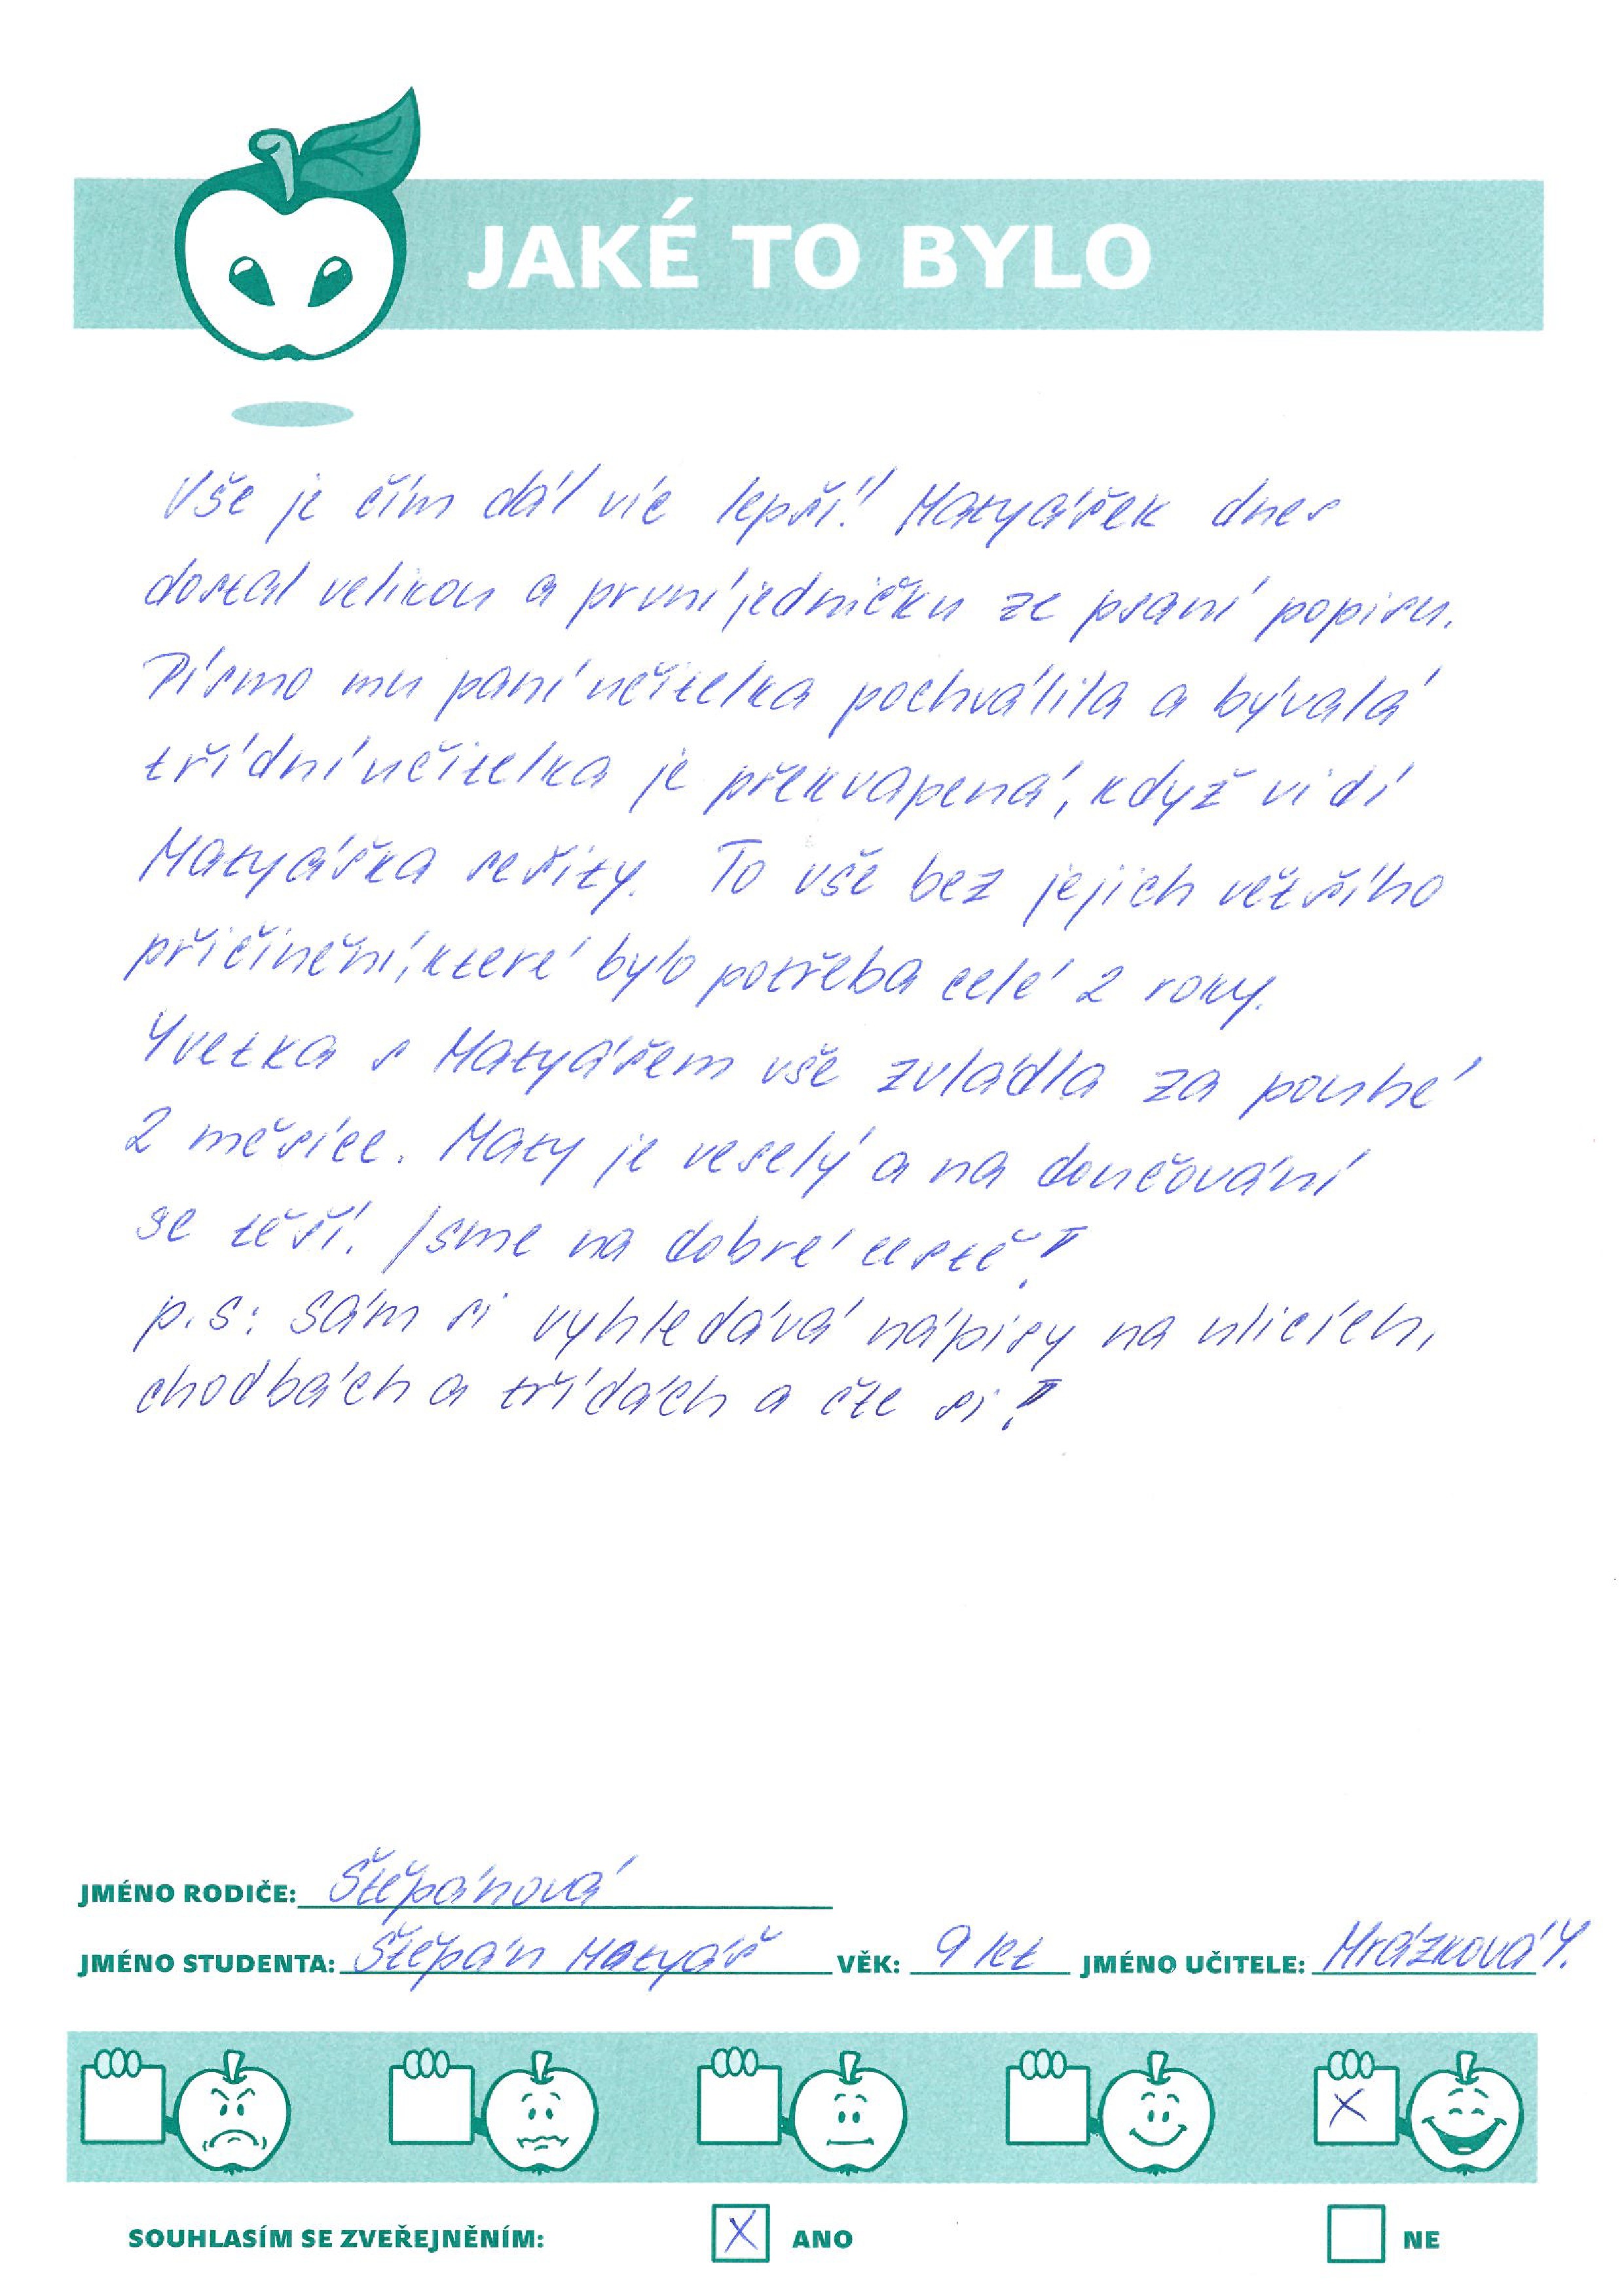 JAKÉ TO BYLO
Vše je čím dál víc lepší! Matyášek dnes
dostal velikou a první jedničku ze psaní popisu.
Písmo mu paní učitelka pochválila a bývalá
třídní učitelka je překvapená, když vidí
Matyáška sešity. To vše bez jejich většího
přičinění, které bylo potřeba celé 2 roky.
Yvetka s Matyášem vše zvládla za pouhé
2 měsíce. Maty je veselý a na doučování
se těší. Jsme na dobré cestě!
p.s: sám si vyhledává nápisy na ulicích,
chodbách a třídách a čte si!
JMÉNO RODIČE: Štěpánová
JMÉNO STUDENTA: Štěpán Matyáš VĚK: 9 let JMÉNO UČITELE: Mrázková Y.
X
SOUHLASÍM SE ZVEŘEJNĚNÍM: X ANO NE